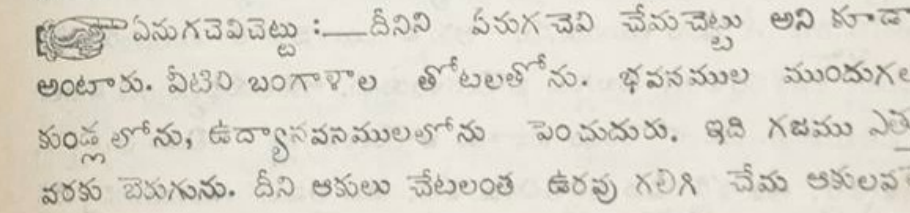 ఏనుగచెవిచెట్టు :—దీనిని ఏనుగ చెవి చేమచెట్టు అని కూడా
అంటారు. వీటిని బంగాళాల తోటలలోను. భవనముల ముందుగల
కుండ్లలోను, ఉద్యానవనములలోను పెంచుదురు. ఇది గజము ఎత్తు
వరకు బెరుగును. దీని ఆకులు చేటలంత ఉరవు గలిగి చేమ ఆకులవ